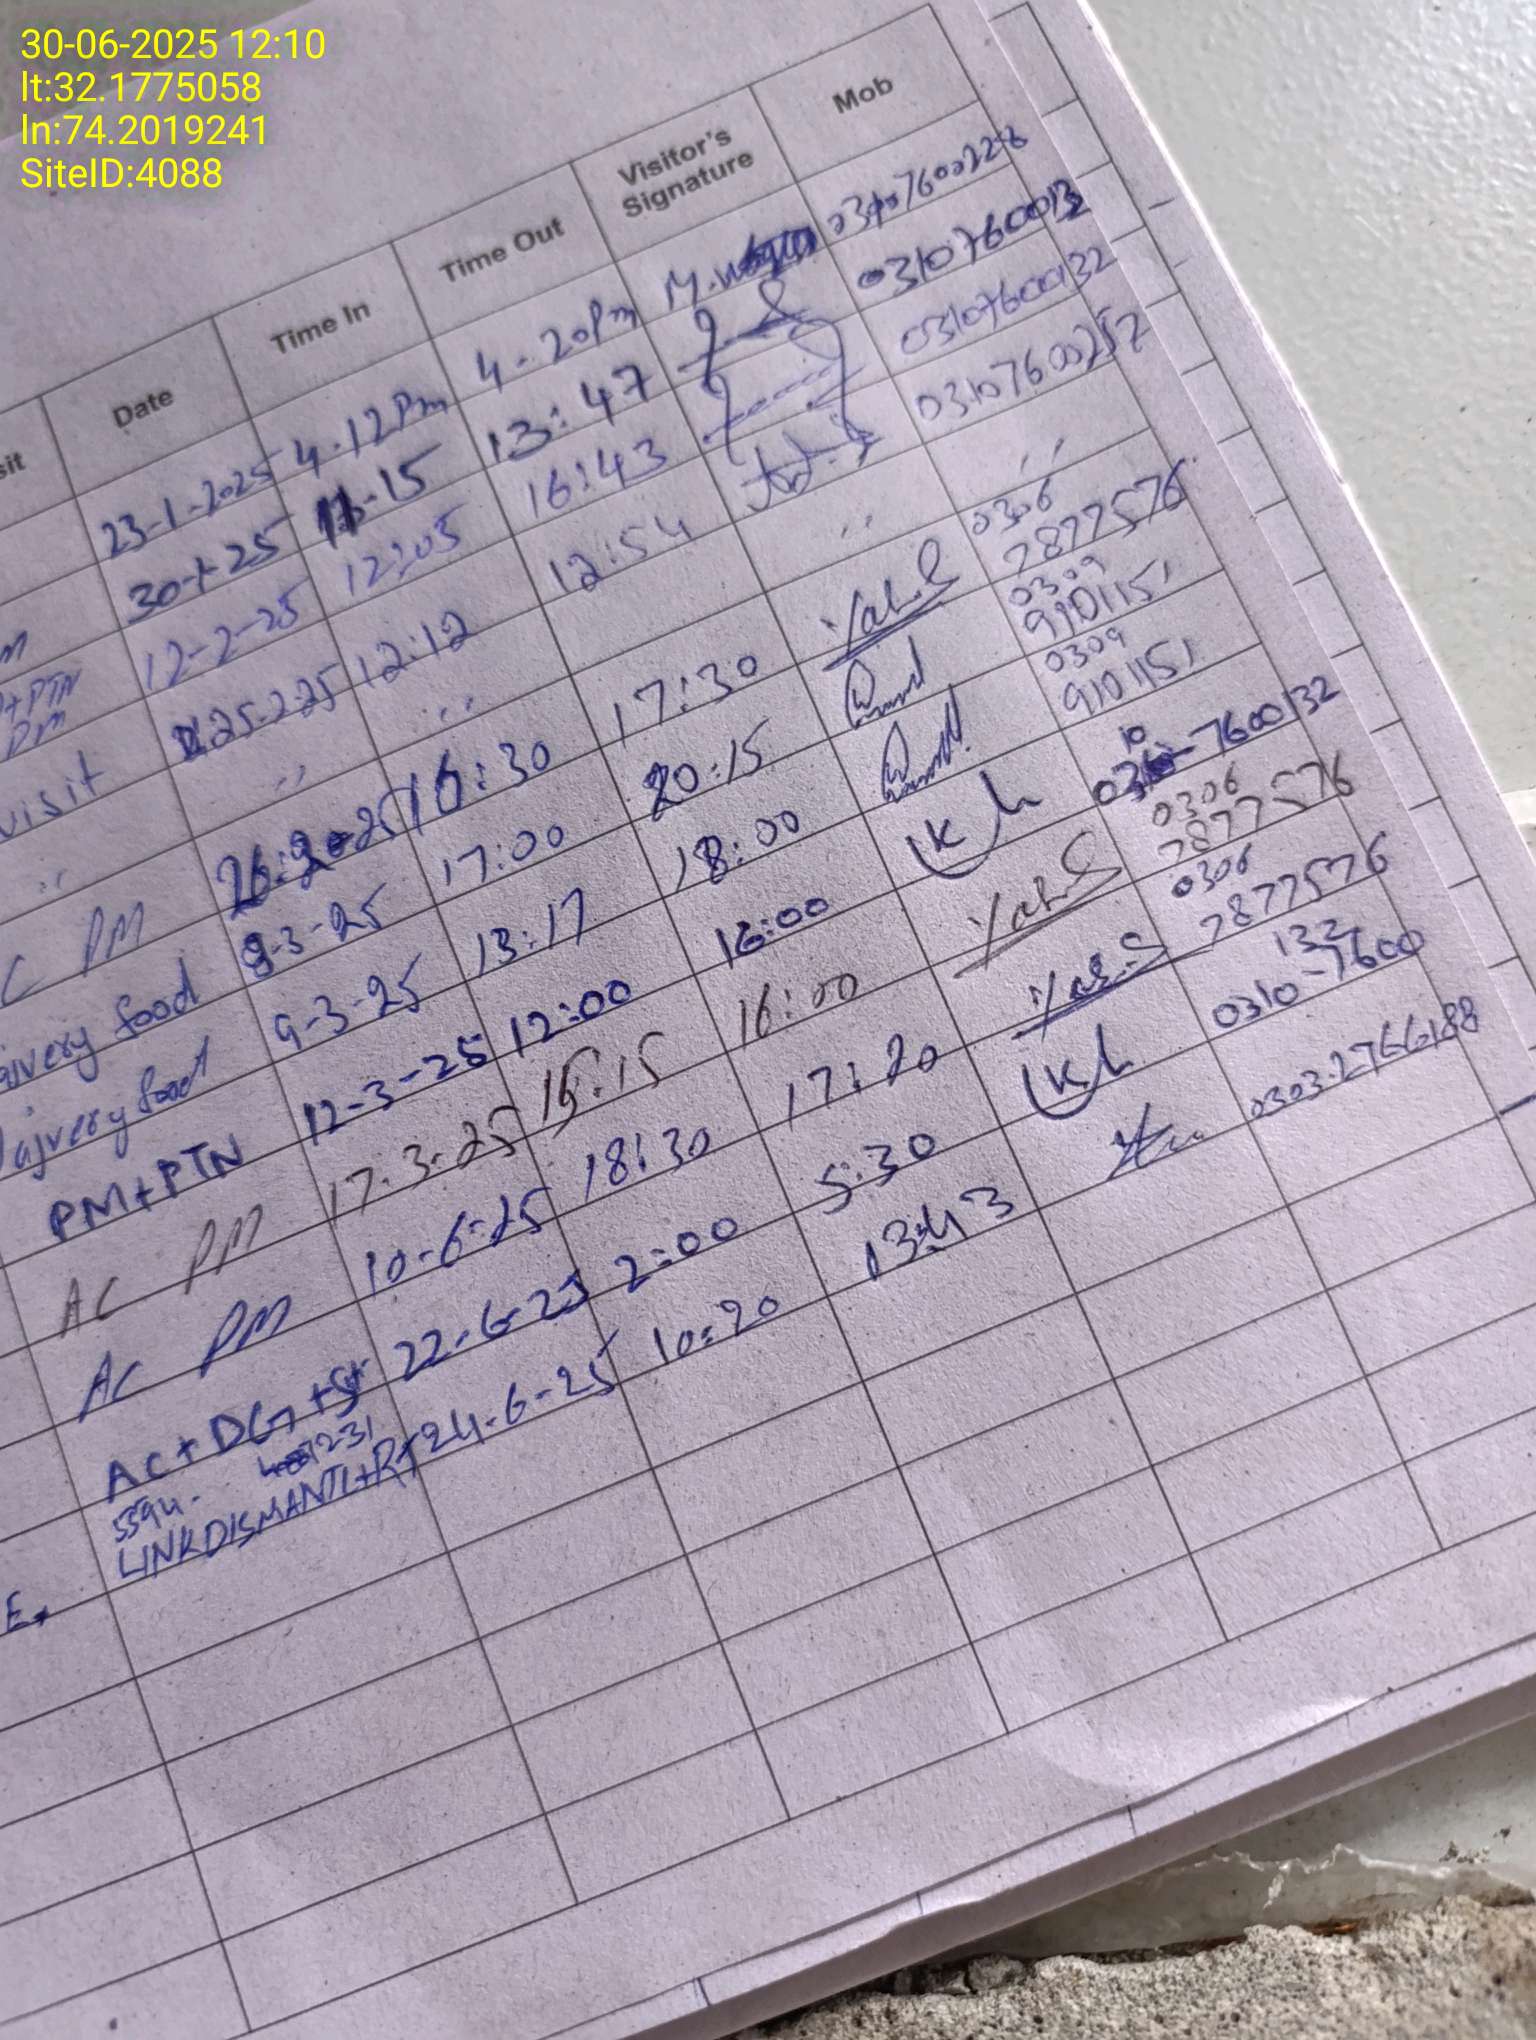 30-06-2025 12:10
lt:32.1775058
ln:74.2019241
SiteID:4088
sit Date Time In Time Out Visitor's Signature Mob
23-1-2025 4.12 Pm 4-20 Pm 03107600228
M 30-1-25 15 13:47 03107600132
+PTN PM 12-2-25 12:05 16:43 03107600132
visit 25-2-25 12:12 12:54 03107600252
" " " " "
C PM 26-2-25 16:30 17:30 0306 7877576
food 8-3-25 17:00 20:15 0309 9101151
food 9-3-25 13:17 18:00 0309 9101151
PM+PTN 12-3-25 12:00 16:00 0310-7600132
AC PM 17-3-25 15:15 16:00 0306 7877576
AC PM 10-6-25 18:30 17:20 0306 7877576
AC+DG+ 22-6-25 2:00 5:30 0310-7600 132
5594- 1231
E. LINKDISMANTL+R+ 24-6-25 10:20 13:43 0303-2766188